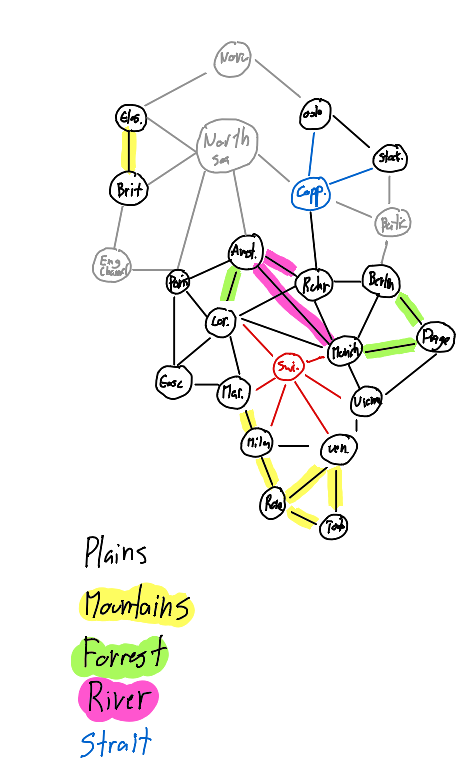 Norw
Glas.
Oslo
North
Sea
Stock.
Brit
Copp.
Baltic
Eng
Channel
Amst.
Pari
Ruhr
Berlin
Lor.
Munich
Prage
Swi.
Gasc
Mar.
Vienna
Milan
Ven.
Rome
Plains
Mountains
Forrest
River
Strait